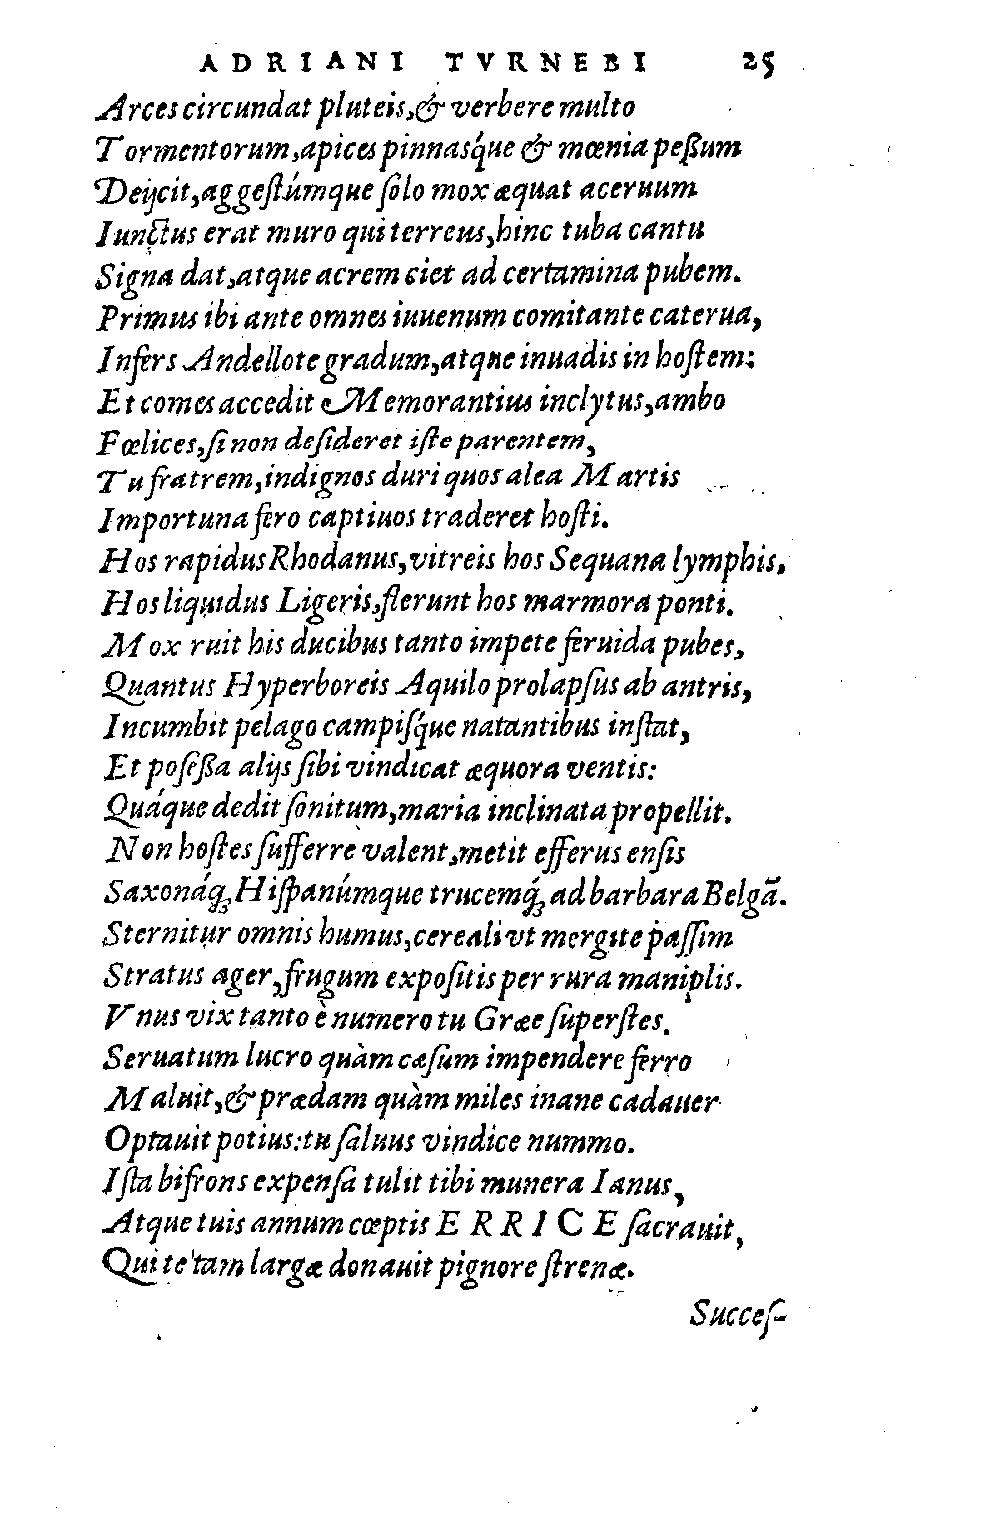 ADRIANI TVRNEBI 25
Arces circundat pluteis, & verbere multo
Tormentorum, apices pinnasq́ue & mœnia peßum
Deijcit, aggeſtúmque ſolo mox æquat aceruum
Iunctus erat muro qui terreus, hinc tuba cantu
Signa dat, atque acrem ciet ad certamina pubem.
Primus ibi ante omnes iuuenum comitante caterua,
Infers Andellote gradum, atque inuadis in hoſtem:
Et comes accedit Memorantius inclytus, ambo
Fœlices, ſi non deſideret iſte parentem,
Tu fratrem, indignos duri quos alea Martis
Importuna fero captiuos traderet hoſti.
Hos rapidus Rhodanus, vitreis hos Sequana lymphis,
Hos liquidus Ligeris, flerunt hos marmora ponti.
Mox ruit his ducibus tanto impete feruida pubes,
Quantus Hyperboreis Aquilo prolapſus ab antris,
Incumbit pelago campiſq́ue natantibus inſtat,
Et poſeßa alijs ſibi vindicat æquora ventis:
Quáque dedit ſonitum, maria inclinata propellit.
Non hoſtes ſufferre valent, metit efferus enſis
Saxonáq; Hiſpanúmque trucemq́; ad barbara Belgã.
Sternitur omnis humus, cereali vt mergite paſſim
Stratus ager, frugum expoſitis per rura maniplis.
Vnus vix tanto è numero tu Græe ſuperſtes.
Seruatum lucro quàm cæſum impendere ferro
Maluit, & prædam quàm miles inane cadauer
Optauit potius: tu ſaluus vindice nummo.
Iſta bifrons expenſa tulit tibi munera Ianus,
Atque tuis annum cœptis ERRICE ſacrauit,
Qui te tam largæ donauit pignore ſtrenæ.
Succeſ-